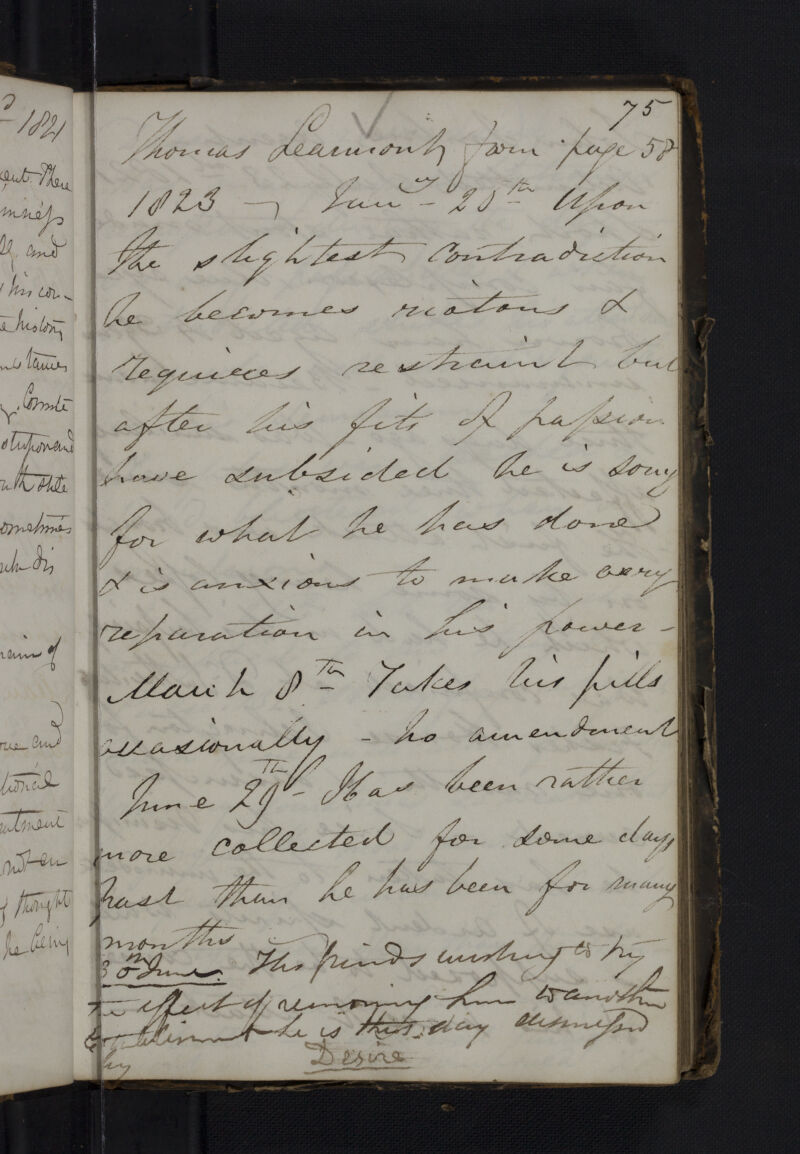 75
Thomas Learmonth from page 58
1823 - Jany - 20th Upon
the slightest contradiction
he becomes riotous &
requires restraint but
after his fits of passion
have subsided he is sorry
for what he has done
& is anxious to make every
reparation in his power -
March 8th Takes his pills
occasionally - no amendment
June 29th Has been rather
more collected for some days
past than he has been for many
months
30th June. His friends wishing to try
the effect of removing him to another
establishment he is this day dismissed
by
Desire
1821
ent. There
and
his con-
history
stances
sometimes
and
thought
he being